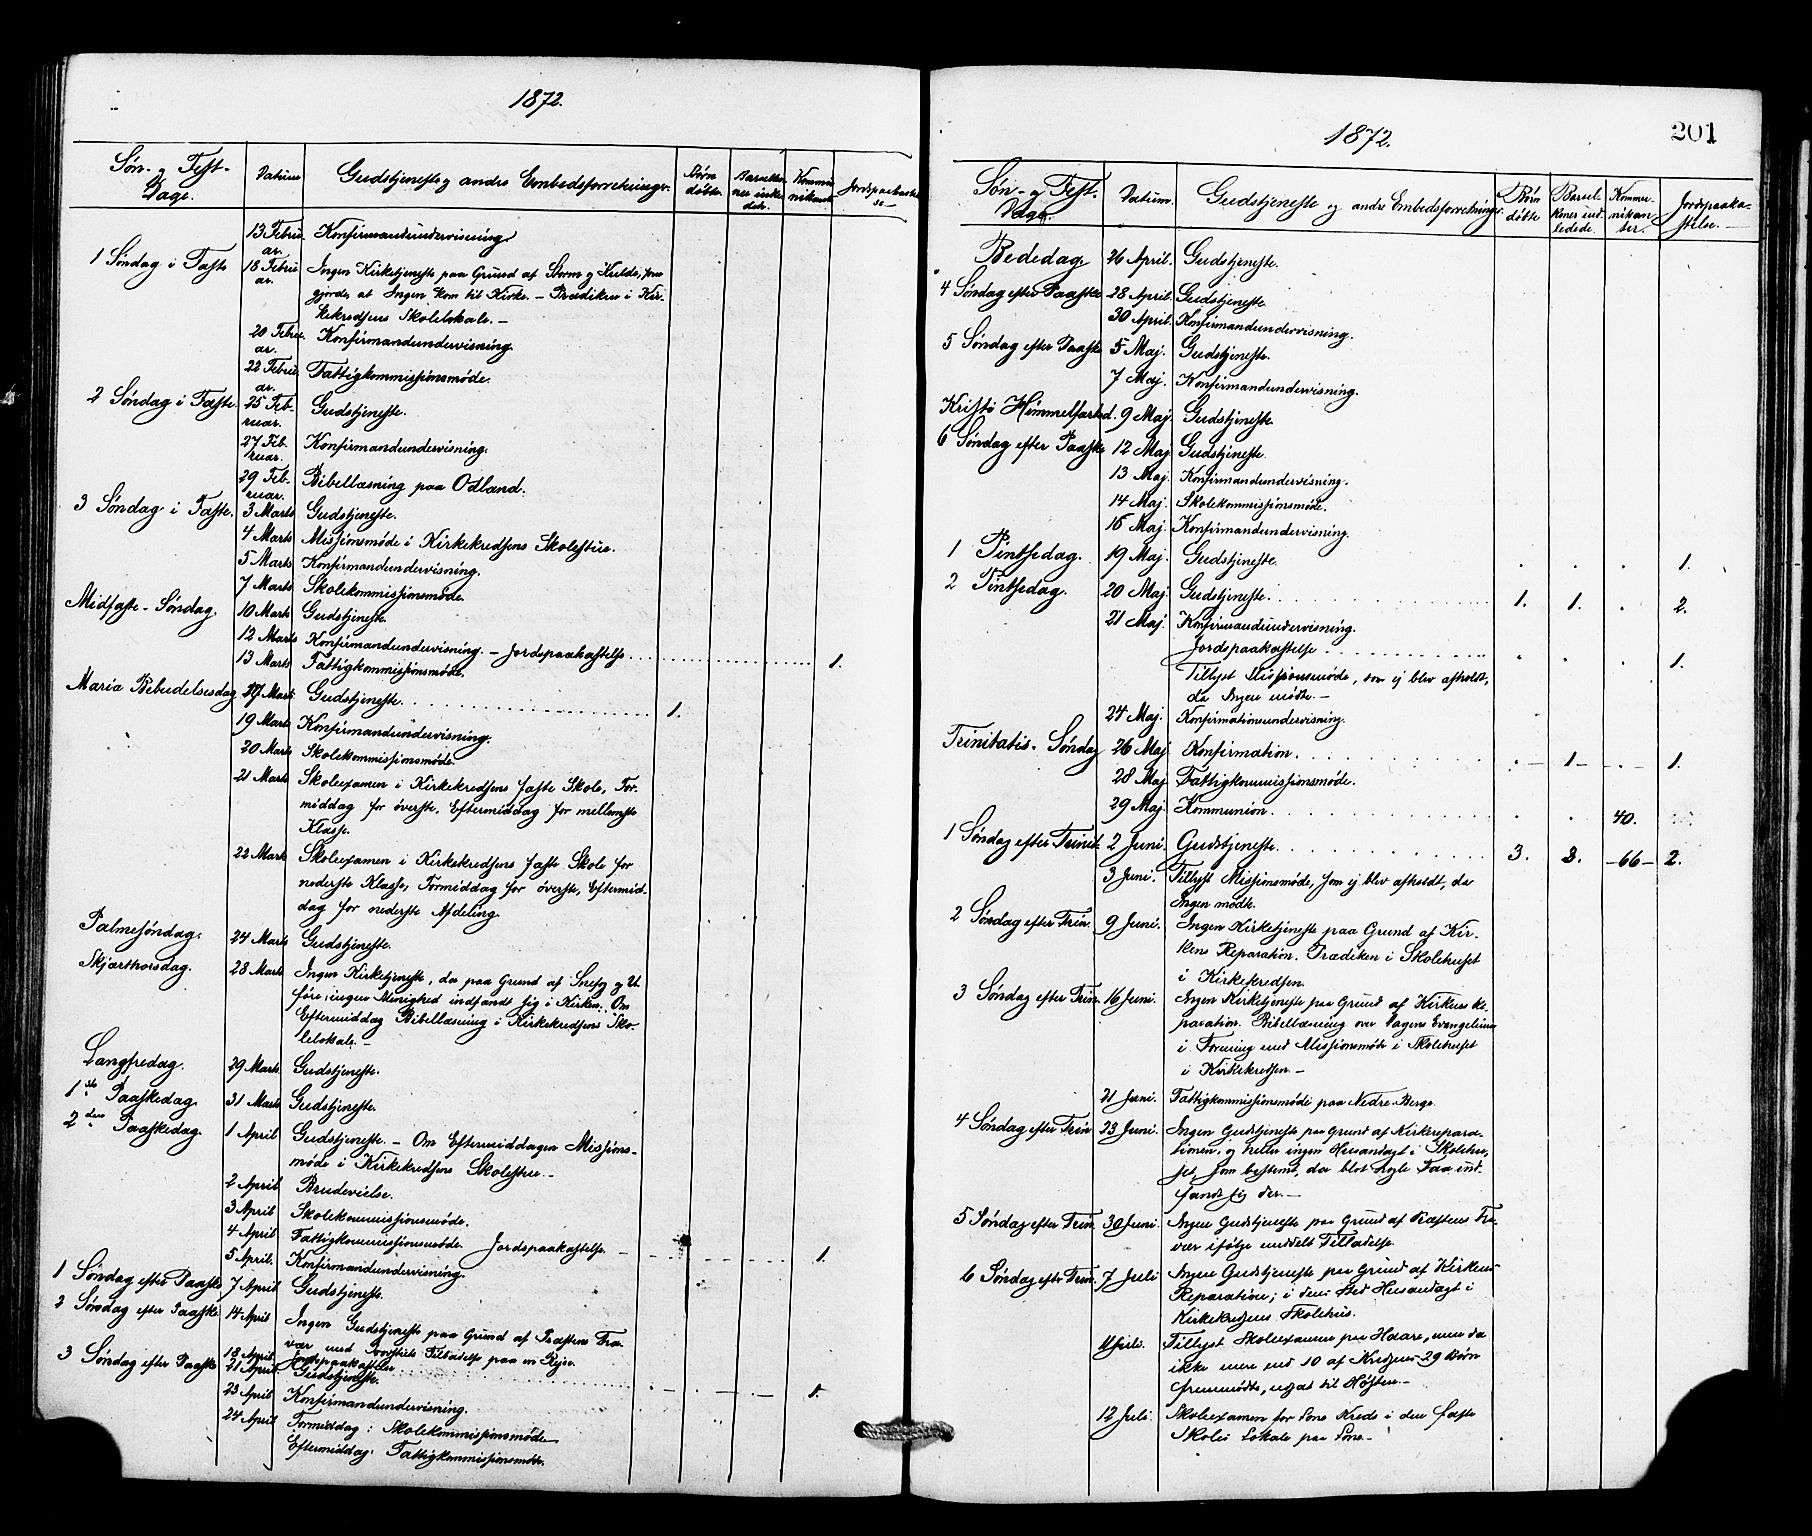 1872.
Søn- og Fest-
Dage.
Datum
Gudstjeneste og andre Embedsforretninger.
Børn
døbte.
Barselko-
ner indle-
dede.
Kommu-
nikanter
Jordspaakastel-
se
13 Febru-
ar.
Konfirmandundervisning
1 Søndag i Faste
18 Febru-
ar.
Ingen Kirketjeneste paa Grund af Storm og Kulde, som
gjorde, at Ingen kom til Kirke. – Prædiken i Kir-
kekredsens Skolelokale. –
20 Febru-
ar.
Konfirmandundervisning.
22 Febru-
ar.
Fattigkommissionsmøde.
2 Søndag i Faste.
25 Feb-
ruar.
Gudstjeneste.
27 Feb-
ruar.
Konfirmandundervisning.
29 Feb-
ruar.
Bibellæsning paa Odland.
3 Søndag i Faste.
3 Marts
Gudstjeneste.
4 Marts
Missionsmøde i Kirkekredsens Skolestue.
5 Marts
Konfirmandundervisning.
7 Marts
Skolekommissionsmøde.
Midfaste-Søndag.
10 Marts
Gudstjeneste.
12 Marts
Konfirmandundervisning. – Jordspaakastelse 1.
13 Marts
Fattigkommissionsmøde.
Maria Bebudelsesdag
17 Marts
Gudstjeneste. 1.
19 Marts
Konfirmandundervisning.
20 Marts
Skolekommissionsmøde.
21 Marts
Skoleexamen i Kirkekredsens faste Skole, For-
middag for øverste, Eftermiddag for mellemste
Klasse.
22 Marts
Skoleexamen i Kirkekredsens faste Skole for
nederste Klasse, Formiddag for øverste, Eftermid-
dag for nederste Afdeling.
Palmesøndag.
24 Marts
Gudstjeneste.
Skjærthorsdag.
28 Marts
Ingen Kirketjeneste, da paa Grund af Snefog og U-
føre, ingen Menighed indfandt sig i Kirken. Om
Eftermiddag Bibellæsning i Kirkekredsens Sko-
lelokale. –
Langfredag.
29 Marts
Gudstjeneste.
1ste Paaskedag.
31 Marts
Gudstjeneste.
2den Paaskedag.
1 April
Gudstjeneste. – Om Eftermiddagen Missions-
møde i Kirkekredsens Skolestue. –
2 April
Brudevielse.
3 April
Skolekommissionsmøde.
4 April
Fattigkommissionsmøde. Jordspaakastelse. 1.
5 April.
Konfirmandundervisning.
1 Søndag efter Paaske
7 April
Gudstjeneste.
2 Søndag efter Paaske
14 April
Ingen Gudstjeneste paa Grund af Præstens Fra-
vær med Provstiets Tilladelse paa en Rejse.
18 April.
Jordspaakastelse
3 Søndag efter Paaske
21 April
Gudstjeneste. 1.
23 April
Konfirmandundervisning.
24 April
Formiddag: Skolekommissionsmøde
Eftermiddag: Fattigkommissionsmøde.
201
1872.
Søn- og Fest-
Dage.
Datum.
Gudstjeneste og andre Embedsforretninger.
Børn
døbte
Barsel-
koner ind-
ledede.
Kommu-
nikan-
ter.
Jordspaaka-
stelse.
Bededag.
26 April.
Gudstjeneste.
4 Søndag efter Paaske
28 April.
Gudstjeneste
30 April.
Konfirmandundervisning.
5 Søndag efter Paaske
5 Maj.
Gudstjeneste.
7 Maj.
Konfirmandundervisning.
Kristi Himmelfartsd.
9 Maj.
Gudstjeneste.
6 Søndag efter Paaske
12 Maj
Gudstjeneste.
13 Maj.
Konfirmandundervisning.
14 Maj.
Skolekommissionsmøde.
16 Maj.
Konfirmandundervisning.
1 Pintsedag.
19 Maj.
Gudstjeneste. 1.
2 Pintsedag.
20 Maj.
Gudstjeneste. 1. 1. 2.
21 Maj.
Konfirmandundervisning.
Jordspaakastelse 1.
Tillyst Missionsmøde, som ej blev afholdt,
da Ingen mødte. –
24 Maj.
Konfirmationsundervisning.
Trinitatis-Søndag
26 Maj
Konfirmation. 1 1.
28 Maj
Fattigkommissionsmøde.
29 Maj.
Kommunion. 40.
1 Søndag efter Trinit.
2 Juni.
Gudstjeneste. 3. 3. 66 2.
3 Juni.
Tillyst Missionsmøde, som ej blev afholdt, da
Ingen mødte.
2 Søndag efter Trin.
9 Juni.
Ingen Kirketjeneste paa Grund af Kir-
kens Reparation. Prædiken i Skolehuset
i Kirkekredsen.
3 Søndag efter Trin.
16 Juni.
Ingen Kirketjeneste paa Grund af Kirkens Re-
paration. Bibellæsning over Dagens Evangelium
i Forening med Missionsmøde i Skolehuset
i Kirkekredsen. –
21 Juni.
Fattigkommissionsmøde paa Nedre-Berge.
4 Søndag efter Trin
23 Juni.
Ingen Gudstjeneste paa Grund af Kirkerepara-
tionen, og heller ingen Husandagt i Skolehu-
set, som bestemt, da blot nogle Faa ind-
fandt sig der. –
5 Søndag efter Trin.
30 Juni.
Ingen Gudstjeneste paa Grund af Præstens Fra-
vær ifølge meddelt Tilladelse.
6 Søndag efter Trin.
7 Juli
Ingen Gudstjeneste paa Grund af Kirkens
Reparation; i dens Sted Husandagt i
Kirkekredsens Skolehus.
Tillyst Skoleexamen paa Haare, men da
ikke mere end 10 af Kredsens 29 Børn
fremmødte, udsat til Høsten. –
12 Juli.
Skoleexamen for Kreds i den faste
Skoles Lokale paa